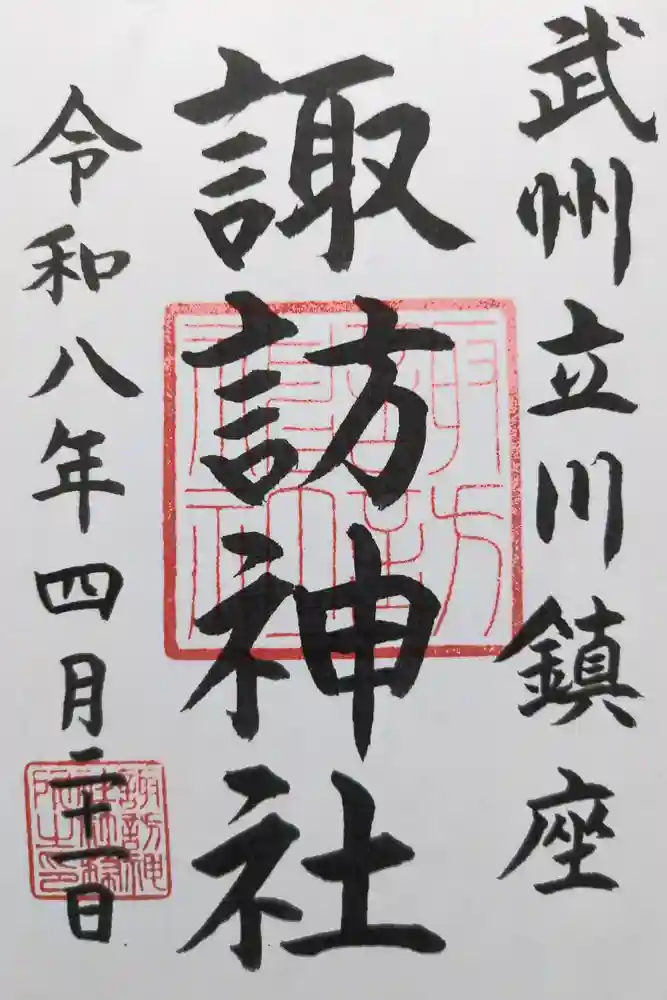 武州立川鎮座
諏訪神社
令和八年四月二十一日
諏訪神
社社務
所之印